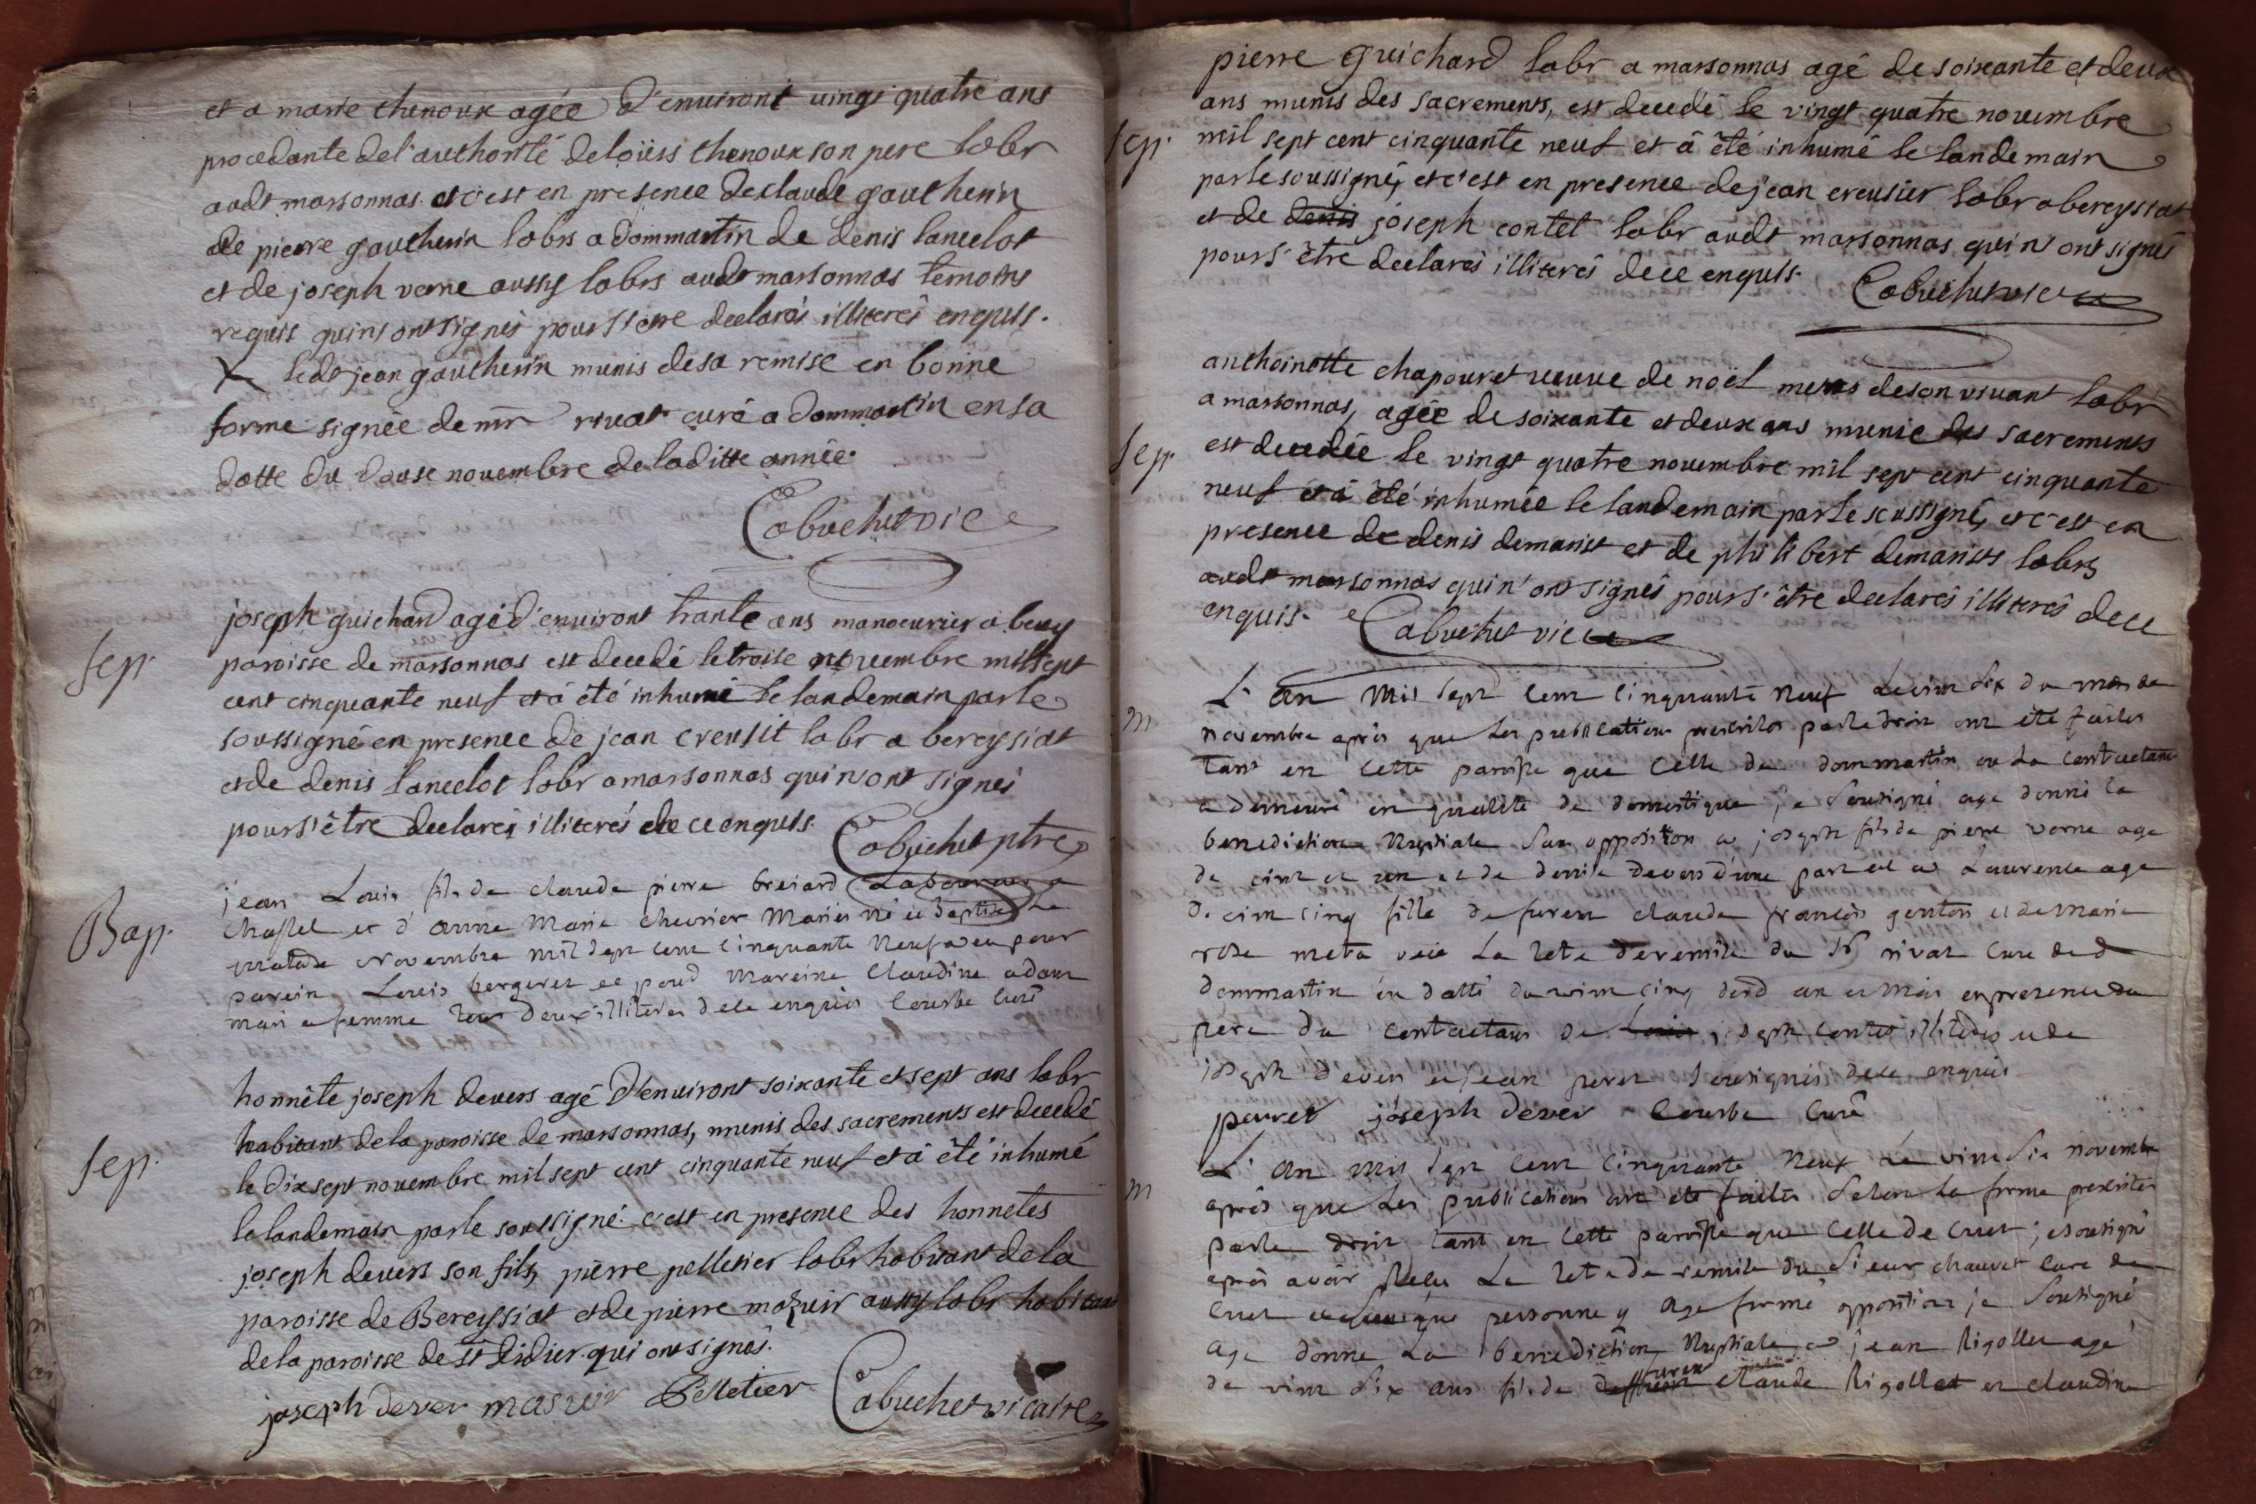 et a marie thenoux agée d'environt vingt quatre ans
procedante de l'authorité de loüis thenoux son pere labr
audt marsonnas et c'est en presence de claude gautherin
de pierre gautherin labrs a dommartin de denis lancelot
et de joseph verne aussy labrs audt marsonnas temoins
requis qui n'ont signés pour s'être declarés illiterés enquis.
X ledt jean gautherin munis de sa remise en bonne
forme signée de mr rivat curé a dommartin en sa
datte du douse novembre de la ditte année.
Cabuchet vic
Sep.
joseph guichard agé d'environt trante ans manoeuvrier a
paroisse de marsonnas est decedé le troise novembre mil sept
cent cinquante neuf et à été inhumé le landemain par le
soussigné en presence de jean creusit labr a bereyssiat
et de denis lancelot labr a marsonnas qui n'ont signés
pour s'être declarés illiterés de ce enquis.
Cabuchet ptre
Bap.
jean Louis fils de claude pierre breiard Laboureur a
chastel et d'anne Marie chevrier Mariés né et baptisé le
novembre mil sept cent cinquante neuf a eu pour
parein Louis bergeret et poud mareine claudine adam
mari et femme tous deux illiteres de ce enquis Courbe Curé
Sep.
honnête joseph devers agé d'environt soixante et sept ans labr
habitant de la paroisse de marsonnas, munis des sacrements est decedé
le dix sept novembre mil sept cent cinquante neuf et à été inhumé
le landemain par le soussigné. c'est en presence des honnetes
joseph devers son fils, pierre pelletier labr habitant de la
paroisse de Bereyssiat et de pierre mazuir aussy labr habitant
de la paroisse de st Didier qui ont signés.
joseph dever masuir Pelletier Cabuchet vicaire
Sep.
pierre guichard labr a marsonnas agé de soixante et deux
ans munis des sacrements, est decedé le vingt quatre novembre
mil sept cent cinquante neuf et à été inhumé le landemain
par le soussigné, et c'est en presence de jean creusier labr a bereyssiat
et de denis joseph contet labr audt marsonnas qui n'ont signés
pour s'être declarés illiterés de ce enquis.
Cabuchet vic
Sep.
anthoinette chapouret veuve de noël de son vivant labr
a marsonnas, agée de soixante et deux ans munie des sacrements
est decedée le vingt quatre novembre mil sept cent cinquante
neuf et à été inhumée le landemain par le soussigné, et c'est en
presence de denis demarist et de philibert demarists labrs
audt marsonnas qui n'ont signés pour s'être declarés illiterés de ce
enquis.
Cabuchet vic
m
L'an Mil sept cent Cinquante Neuf Le vint six du mois de
novembre après que les publications prescrites par le droit ont été faites
tant en cette paroisse que celle de dommartin ou La contractante
a demeuré en qualité de domestique je Soussigné aye donné la
benediction Nuptiale sans opposition a joseph fils de pierre verne age
de vint et un et de denise devers d'une part et a Laurence age
de vint cinq fille de furent claude françois genton et de marie
rose meta veu La lete de remise du Sr rivat Curé de
dommartin en datte du vint cinq dud an et Mois en presence du
père du contractant de joseph contet illiteres et de
joseph dever et jean peret soussignés de ce enquis
perret joseph dever Courbe Curé
m
L'an Mil sept cent Cinquante Neuf Le vint Six novembre
après que les publications ont eté faites Selon la forme prescrites
par le droit tant en cette paroisse que celle de Cuet je soussigné
après avoir Receu La lete de remise du Sieur chauvet Curé de
Cuet personne y aye formé opposition je Soussigné
aye donné La benediction Nuptiale a jean Rigollet agé
de vint six ans fils de furent claude Rigollet et claudine